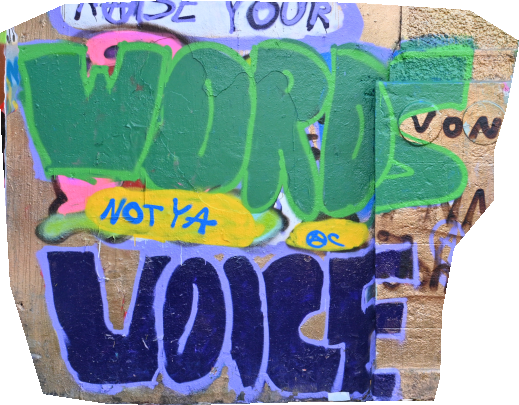 RAISE YOUR
WORDS
VON
NOT YA
VOICE